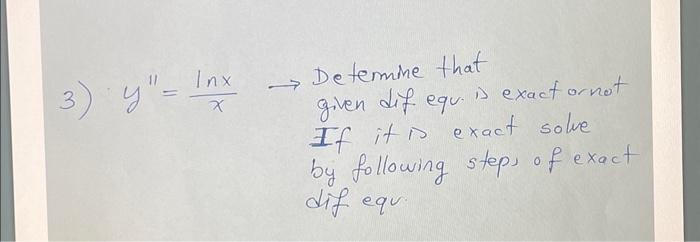 3) y'' = lnx / x → Determine that
given dif equ. is exact or not
If it is exact solve
by following steps of exact
dif equ.